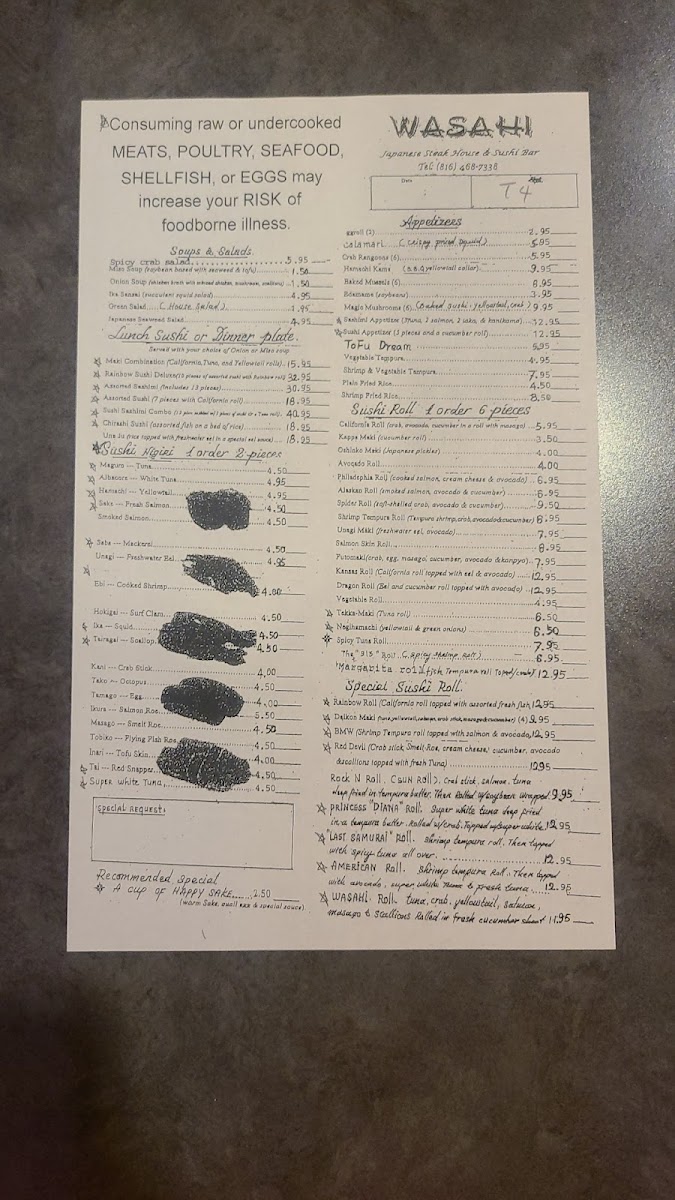 Consuming raw or undercooked
MEATS, POULTRY, SEAFOOD,
SHELLFISH, or EGGS may
increase your RISK of
foodborne illness.
Soups & Salads.
Spicy crab salad 5.95
Miso Soup (soybean based with seaweed & tofu) 1.50
Onion Soup 1.50
Ika Sansai (succulent squid salad) 4.95
Green Salad (House Salad) 1.95
Japanese Seaweed Salad 4.95
Lunch Sushi or Dinner plate.
Served with your choice of Onion or Miso soup
Maki Combination (California, Tuna, and Yellowtail rolls) 15.95
Rainbow Sushi Deluxe 32.95
Assorted Sashimi (Includes 15 pieces) 30.95
Assorted Sushi (7 pieces with California roll) 18.95
Sushi Sashimi Combo 40.95
Chirashi Sushi (assorted fish on a bed of rice) 18.95
Una Ju (rice topped with freshwater eel in a special eel sauce) 18.95
Sushi Nigiri 1 order 2 pieces
Maguro --- Tuna 4.50
Albacore --- White Tuna 4.95
Hamachi --- Yellowtail 4.95
Sake --- Fresh Salmon 4.50
Smoked Salmon 4.50
Saba --- Mackerel 4.50
Unagi --- Freshwater Eel 4.95
Ebi --- Cooked Shrimp 4.00
Hokigai --- Surf Clam 4.50
Ika --- Squid 4.50
Tairagai --- Scallop 4.50
Kani --- Crab Stick 4.00
Tako --- Octopus 4.50
Tamago --- Egg 4.00
Ikura --- Salmon Roe 5.50
Masago --- Smelt Roe 4.50
Tobiko --- Flying Fish Roe 4.50
Inari --- Tofu Skin 4.00
Tai --- Red Snapper 4.50
Super White Tuna 4.50
SPECIAL REQUEST:
Recommended Special
A CUP OF HAPPY SAKE 2.50
(warm Sake, quail egg & special sauce)
WASAHI
Japanese Steak House & Sushi Bar
Tel (816) 468-7338
Date
T4
Appetizers
Eggroll (2) 2.95
Calamari (Crispy fried squid) 5.95
Crab Rangoons (6) 5.95
Hamachi Kama (B.B.Q yellowtail collar) 9.95
Baked Mussels (6) 8.95
Edamame (soybeans) 3.95
Magic Mushrooms (6) (Cooked sushi, yellowtail, crab) 9.95
Sashimi Appetizer (3 tuna, 2 salmon, 2 tako, & kanikama) 12.95
Sushi Appetizer (5 pieces and a cucumber roll) 12.95
ToFu Dream 6.95
Vegetable Tempura 4.95
Shrimp & Vegetable Tempura 7.95
Plain Fried Rice 4.50
Shrimp Fried Rice 8.50
Sushi Roll 1 order 6 pieces
California Roll (crab, avocado, cucumber in a roll with masago) 5.95
Kappa Maki (cucumber roll) 3.50
Oshinko Maki (Japanese pickles) 4.00
Avocado Roll 4.00
Philadephia Roll (cooked salmon, cream cheese & avocado) 6.95
Alaskan Roll (smoked salmon, avocado & cucumber) 6.95
Spider Roll (soft-shelled crab, avocado & cucumber) 9.50
Shrimp Tempura Roll (Tempura shrimp, crab, avocado & cucumber) 8.95
Unagi Maki (freshwater eel, avocado) 7.95
Salmon Skin Roll 8.95
Futomaki (crab, egg, masago, cucumber, avocado & kanpyo) 7.95
Kansas Roll (California roll topped with eel & avocado) 12.95
Dragon Roll (Eel and cucumber roll topped with avocado) 12.95
Vegetable Roll 4.95
Tekka-Maki (Tuna roll) 6.50
Negihamachi (yellowtail & green onions) 6.50
Spicy Tuna Roll 7.95
The "913" Roll (Spicy Shrimp Roll) 6.95
"Margarita roll" (fish Tempura roll Toped/crab) 12.95
Special Sushi Roll
Rainbow Roll (California roll topped with assorted fresh fish) 12.95
Daikon Maki (tuna, yellowtail, salmon, crab stick, masago & cucumber) (4) 8.95
BMW (Shrimp Tempura roll topped with salmon & avocado) 12.95
Red Devil (Crab stick, Smelt Roe, cream cheese, cucumber, avocado
& scallions topped with fresh Tuna) 12.95
Rock N Roll. (SUN Roll). Crab stick, salmon, tuna
deep fried in tempura butter. Then Rolled w/soybean wrapped. 9.95
PRINCESS "DIANA" Roll. Super white tuna deep fried
in a tempura butter. Rolled w/crab. Topped w/super white. 12.95
"LAST SAMURAI" Roll. Shrimp tempura roll. Then topped
with spicy tuna all over. 12.95
AMERICAN Roll. Shrimp tempura Roll. Then topped
with avocado, super white tuna & fresh tuna 12.95
WASAHI Roll. tuna, crab, yellowtail, salmon,
masago & scallions Rolled in fresh cucumber sheet 11.95